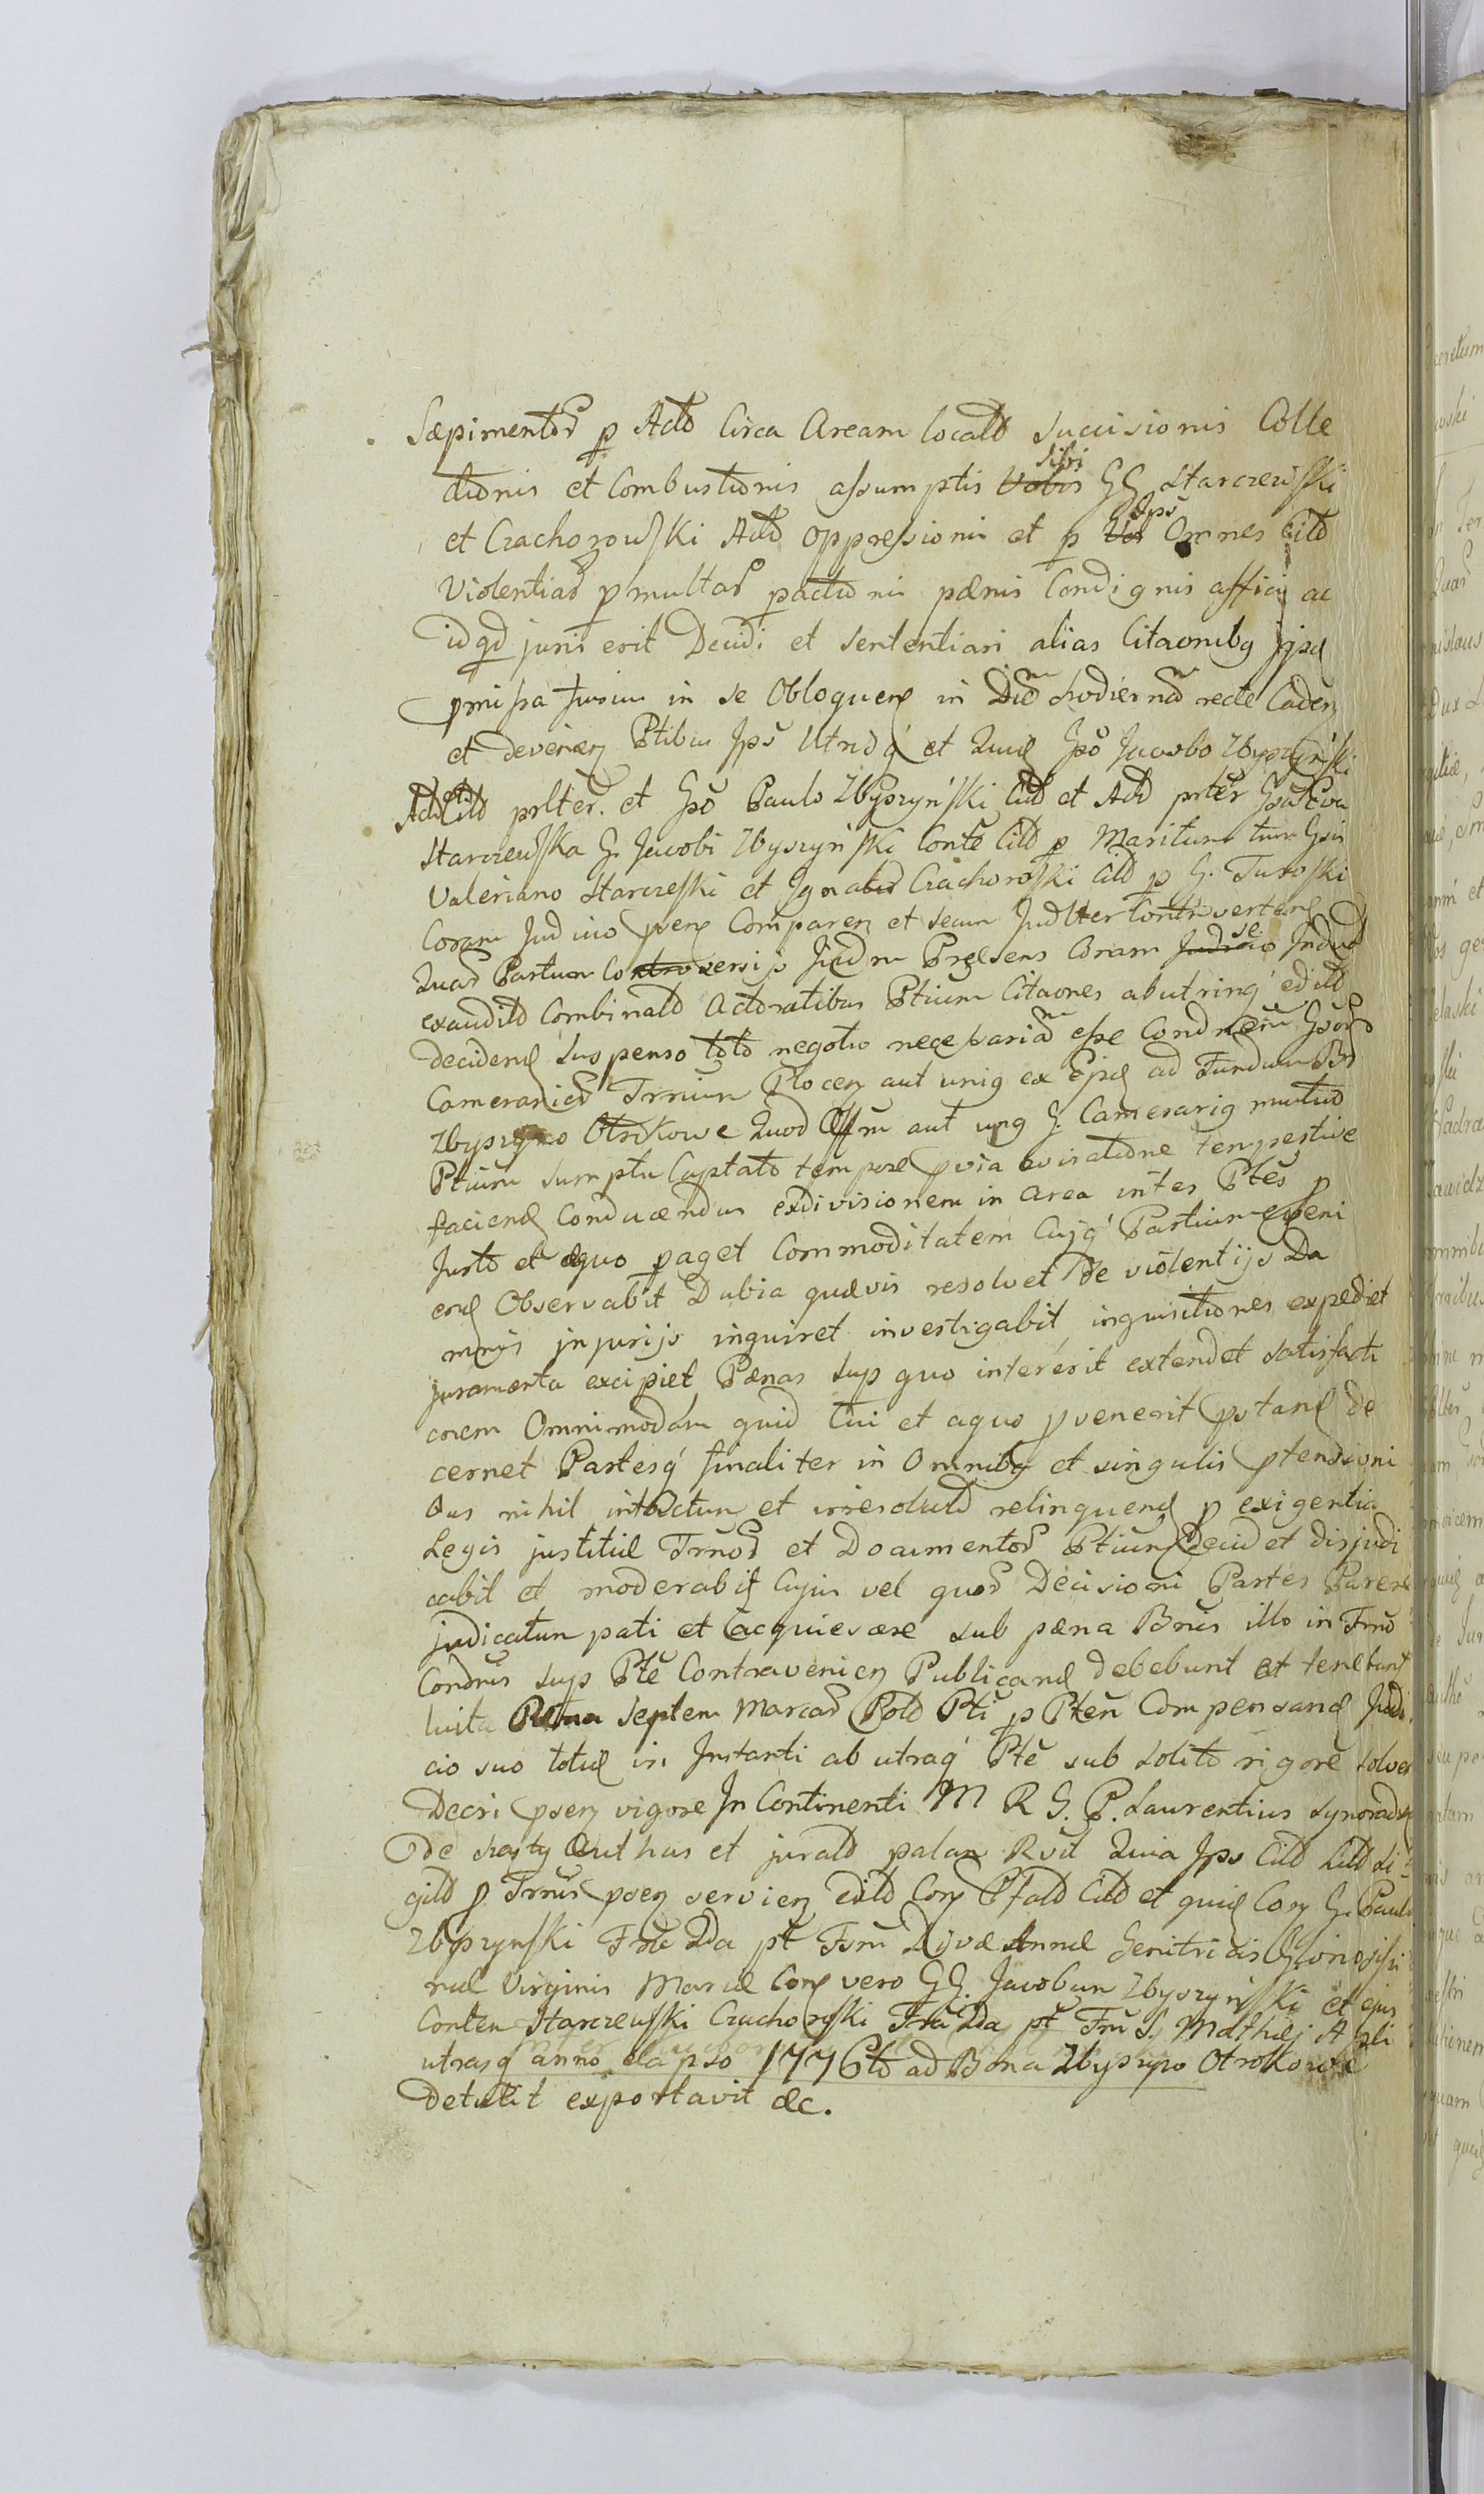 Sæpimentor p Acto Circa Aream locato succisionis Colle
ctionis et Combustionis assumptis Vobis sibi GG Starczewski
et Czachorowski Acto oppressionis et p Vos Ipos Omnes Cito
Violentias p multas pactionis pænis Condignis affici ac
id qd juris erit Decidi et sententiari alias Citaonibg
pmissa fusius in se Obloquen in Diem hodiernam recte Caden
et devenien Ptibus Ips Utrisq et Quid Gso Jacobo Zbyszynski
Acto Cito prlter. et Gso Paulo Zbyszyński Cito et Acto prlter Gsa Eva
Starczewska G. Jacobi Zbyszynski Conte Cito p Maritum tum Gsis
Valeriano Starczeski et Ignatio Czachoroski Cito p G. Turoski
Coram Judicio psen Comparen et secum Judlter Controverten
Quar Partium Controversijs Judm Præsens Coram Judicio se Induc
exaudito Combinato Actoratibus Ptium Citaones ab utrinq edito
deciden suspenso toto negotio necessariam esse Condnem Gsor
Camerarior Trrium Plocen aut uniq ex Ejsd ad Fundum Bon
Zbyszyno Otrokowe Quod Offm aut unq G. Camerarig mutuo
Ptium sumptu Captato tempore pvia avisatione tempestive
facien Conducendus exdivisionem in Area inter Ptes p
Justo et æquo paget Commoditatem Cujq Partium eveni
end Observabit Dubia quævis resolvet de violentijs Da
mnis injurijs inquiret investigabit inquisitiones expediet
juramenta excipiet Pænas sup quo intererit extendet satisfacti
onem Omnimodam quid Cui et aquo pvenerit pstand de
cernet Partesq finaliter in Omnibg et singulis ptensioni
bus nihil intactum et irresoluto relinquend p exigentia
Legis justitiæ Trrnor et Documentor Ptium Decid et disjudi
cabit et moderabit Cujus vel quor Decisioni Partes Parere
judicatum pati et acquiescere sub pæna Bnis illo in Trrno
Condnis sup Pte Contravenien Publicand debebunt et tenebunt
luita Pæna septem Marcar Polo Pti p Pten Compensand Judi
cio suo totid in Instanti ab utraq Pte sub solito rigore solven
Decri psen vigore In Continenti M R G. P. Laurentius Synoradzki
de Authus et jurato palam Rvit Quia Ips Cito Lito Si
gilo p Trrnis psen servien edito Cory Pfato Cito et quid Cory G. Paulo
Zbyszynski Fria 2da pt Fsm Divæ Annæ Genitricis Gloriosissi
mæ Virginis Mariæ Cory vero GG. Jacobum Zbyszynski et ejus
Conten Starczewski Czachorski Fria 2da pt Fsm S. Mathæj Apli
utrasq anno elapso 1776to ad Bona Zbyszyno Otrokowe
Detulit exportavit &c.